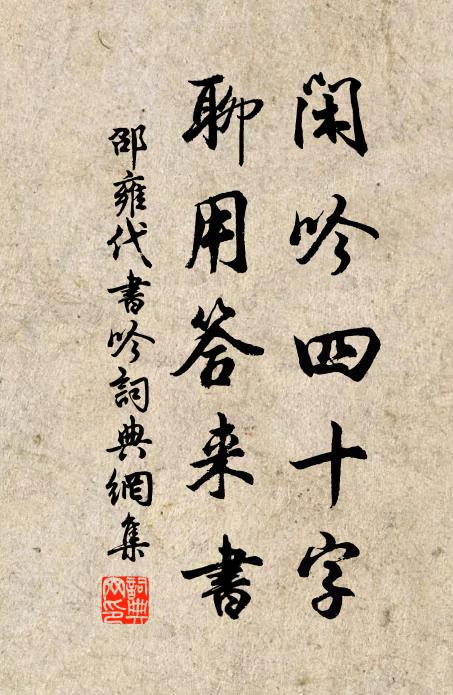 閑吟四十字
聊用答来書
邵雍代書吟詞典網集
詞典網印